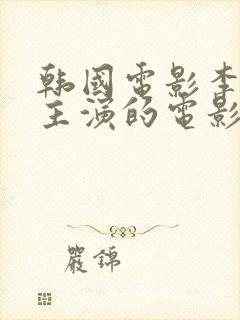 韩國電影李
主演的電影
嚴錦